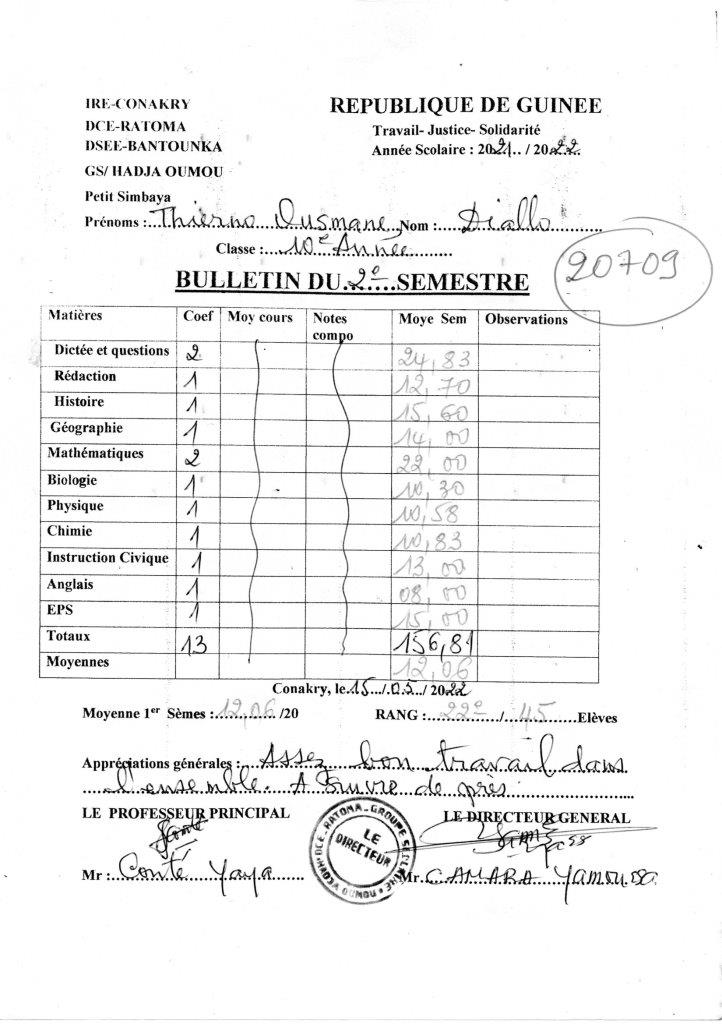 IRE-CONAKRY
REPUBLIQUE DE GUINEE
DCE-RATOMA
Travail- Justice- Solidarité
DSEE-BANTOUNKA
Année Scolaire : 2021../ 2022.
GS/ HADJA OUMOU
Petit Simbaya
Prénoms : Thierno Ousmane Nom : Diallo
Classe : 10e Année
20709
BULLETIN DU 2e SEMESTRE
Matières Coef Moy cours Notes compo Moye Sem Observations
Dictée et questions 2 24,83
Rédaction 1 12,70
Histoire 1 15,60
Géographie 1 14,00
Mathématiques 2 22,00
Biologie 1 10,30
Physique 1 10,58
Chimie 1 10,83
Instruction Civique 1 13,00
Anglais 1 08,00
EPS 1 15,00
Totaux 13 156,81
Moyennes 12,06
Conakry, le 15 /.05 / 2022
Moyenne 1er Sèmes : 12,06 /20 RANG : 22e / 45 Elèves
Appréciations générales : Assez bon travail dans
l'ensemble. A suivre de près
LE PROFESSEUR PRINCIPAL LE DIRECTEUR GENERAL
LE DIRECTEUR
DCE-RATOMA-GROUPE
OUMOU
Mr : Conté Yaya Mr. CAMARA Yamoussa